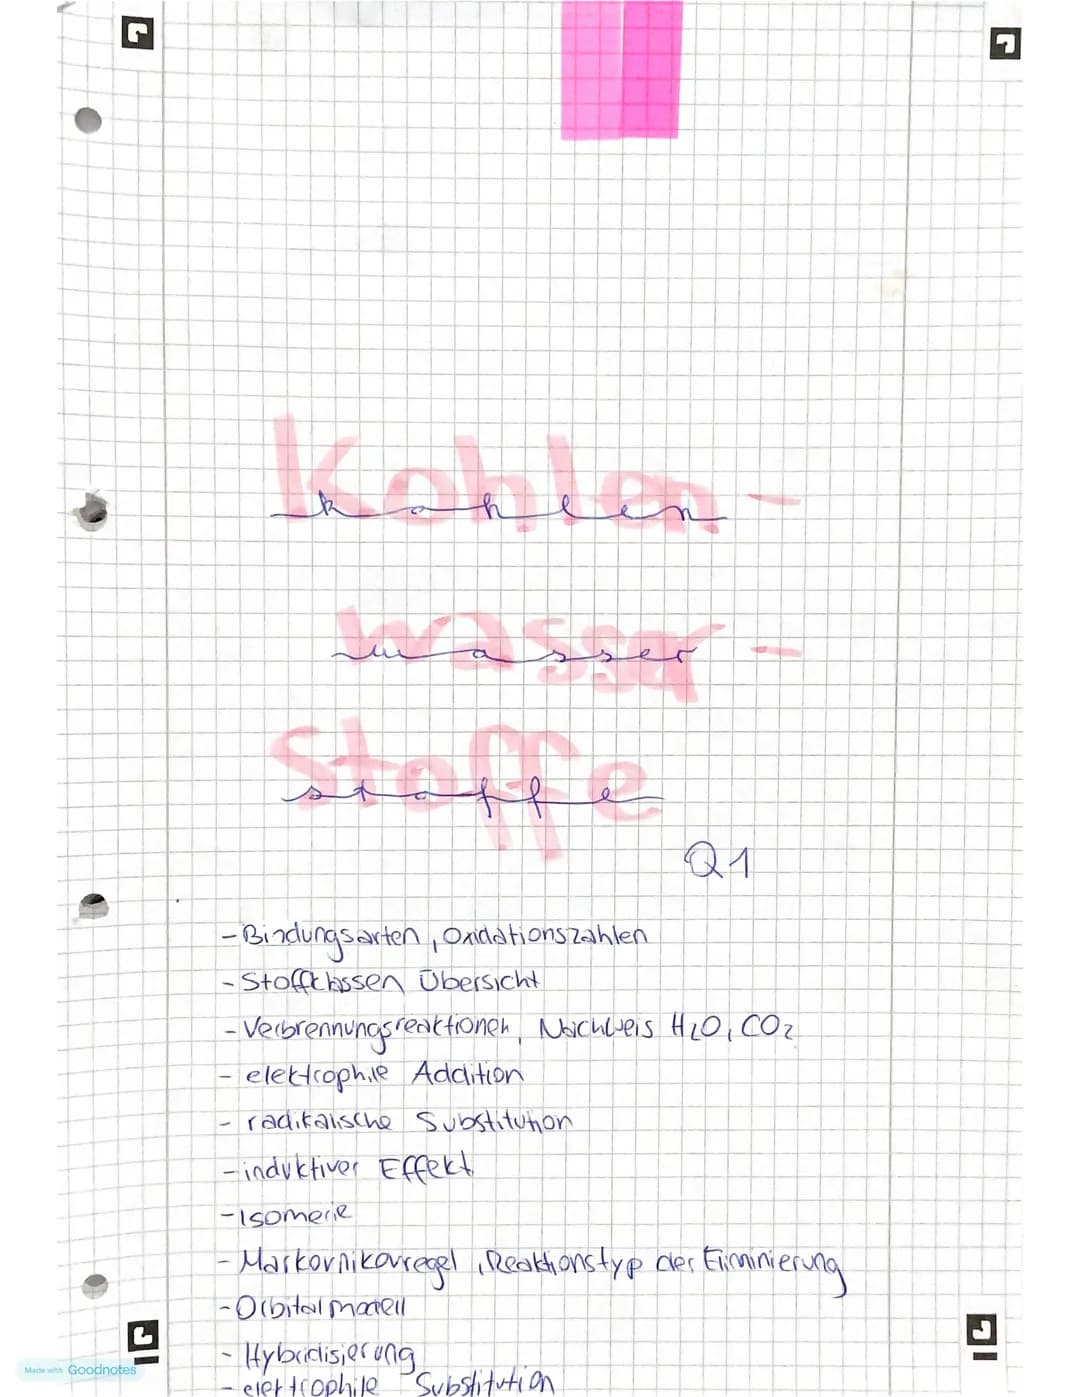 Kohlen-
kohlen
wasser-
wasser
Stoffe
stoffe
Q1
- Bindungsarten, Oxidationszahlen
- Stoffklassen Übersicht
- Verbrennungsreaktionen, Nachweis H₂O, CO₂
- elektrophile Addition
- radikalische Substitution
- induktiver Effekt
- Isomerie
- Markovnikovregel, Reaktionstyp der Eliminierung
- Orbitalmodell
- Hybridisierung
- elektrophile Substitution
Made with Goodnotes